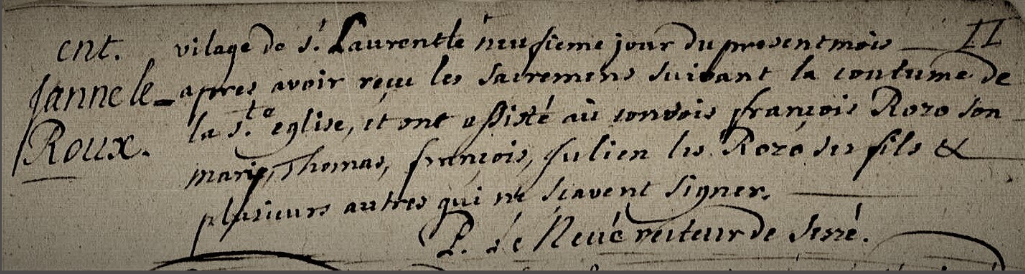 ent.
Janne le
Roux.
II
vilage de s.t Laurent le neufieme jour du present mois
apres avoir reçu les sacremens suivant la coutume de
la s.te eglise, et ont assisté au convois françois Rozo son
mari, Thomas, françois, Julien les Rozo ses fils &
plusieurs autres qui ne scavent signer.
P. Le Neué recteur de serré.